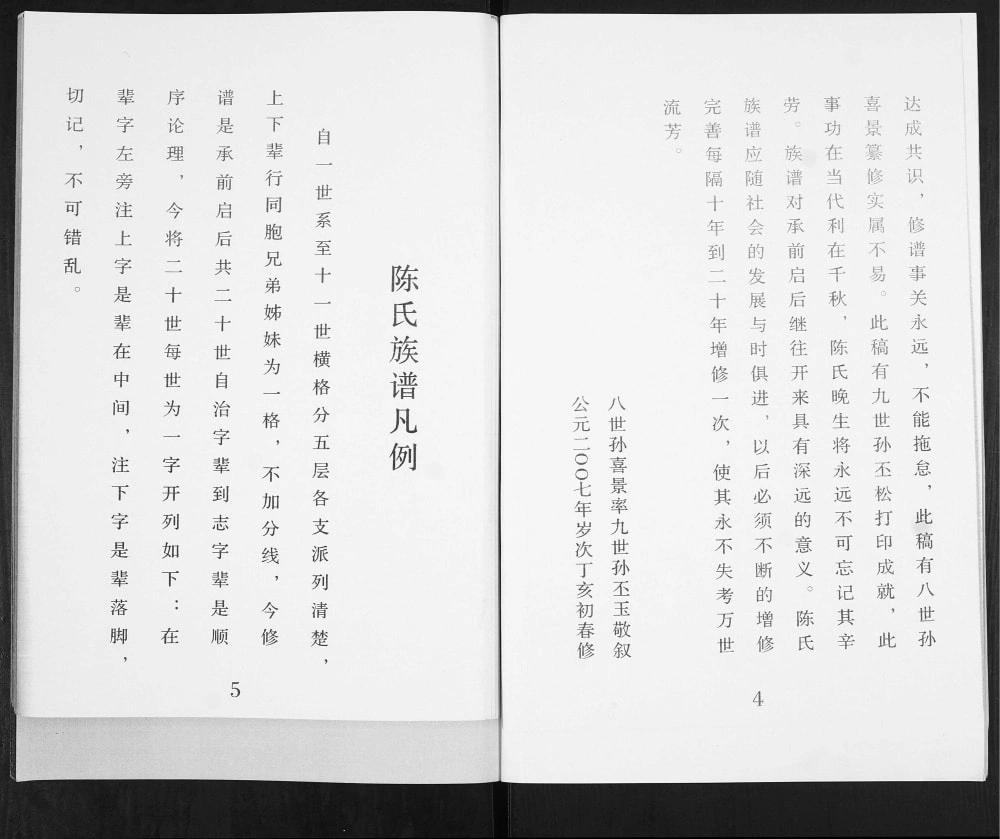 达成共识，修谱事关永远，不能拖怠，此稿有八世孙
喜景纂修实属不易。此稿有九世孙丕松打印成就，此
事功在当代利在千秋，陈氏晚生将永远不可忘记其辛
劳。族谱对承前启后继往开来具有深远的意义。陈氏
族谱应随社会的发展与时俱进，以后必须不断的增修
完善每隔十年到二十年增修一次，使其永不失考万世
流芳。
八世孙喜景率九世孙丕玉敬叙
公元二〇〇七年岁次丁亥初春修
4
陈氏族谱凡例
自一世系至十一世横格分五层各支派列清楚，
上下辈行同胞兄弟姊妹为一格，不加分线，今修
谱是承前启后共二十世自治字辈到志字辈是顺
序论理，今将二十世每世为一字开列如下：在
辈字左旁注上字是辈在中间，注下字是辈落脚，
切记，不可错乱。
5